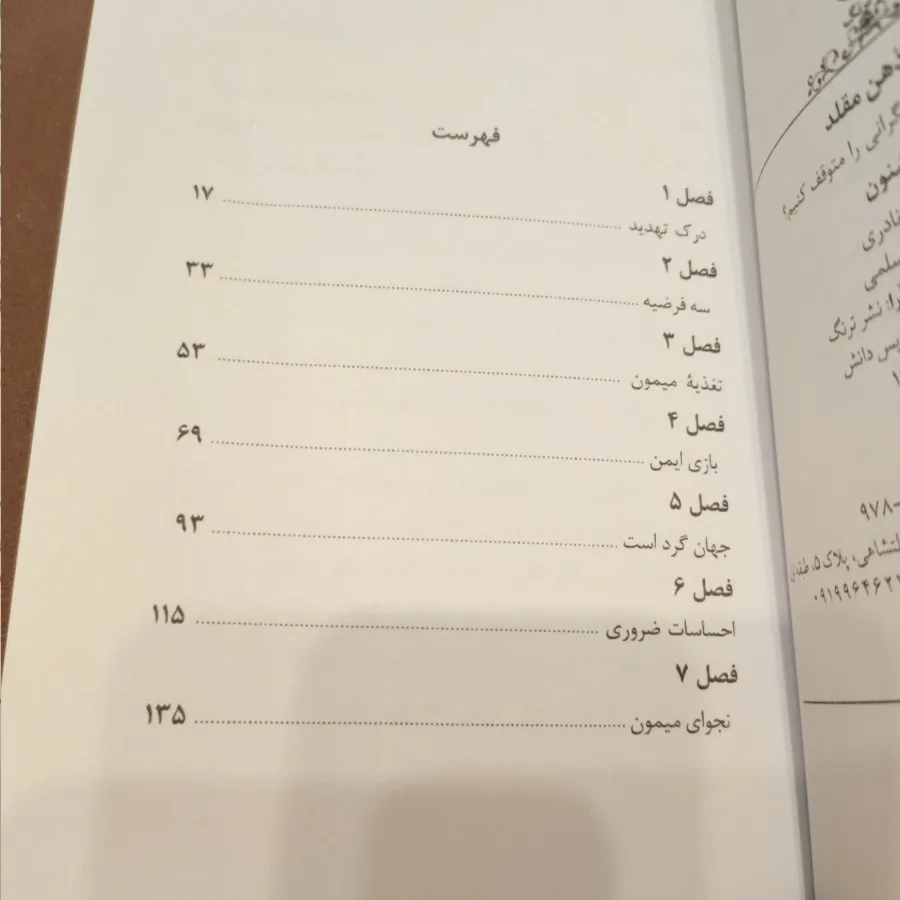 فهرست
فصل ۱
درک تهدید ........ ۱۷
فصل ۲
سه فرضیه ........ ۳۳
فصل ۳
تغذیهٔ میمون ........ ۵۳
فصل ۴
بازی ایمن ........ ۶۹
فصل ۵
جهان گرد است ........ ۹۳
فصل ۶
احساسات ضروری ........ ۱۱۵
فصل ۷
نجوای میمون ........ ۱۳۵
ذهن مقلد
را متوقف کنیم؟
نادری
نشر ترنگ
دانش
۹۷۸-
پلاک ۵،